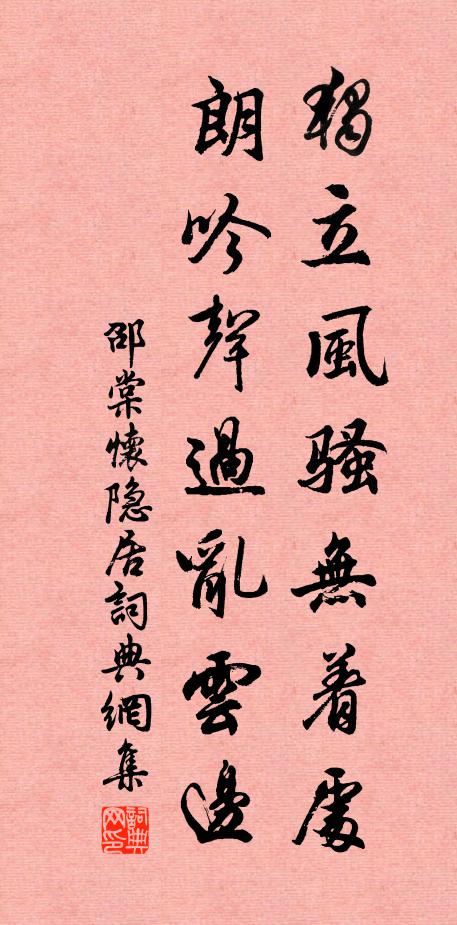 獨立風騷無着處
朗吟聲過亂雲邊
邵棠懷隐居詞典網集
詞典网印